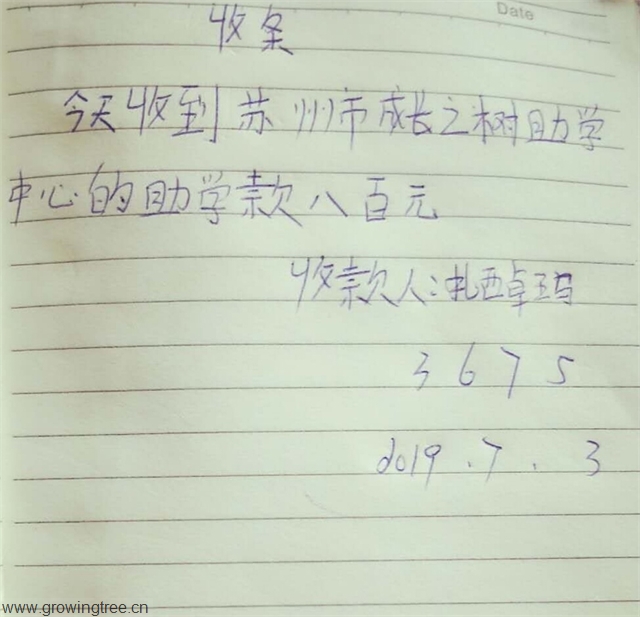 Date
收条
今天收到苏州市成长之树助学
中心的助学款八百元
收款人:扎西卓玛
3675
2019.7.3
www.growingtree.cn